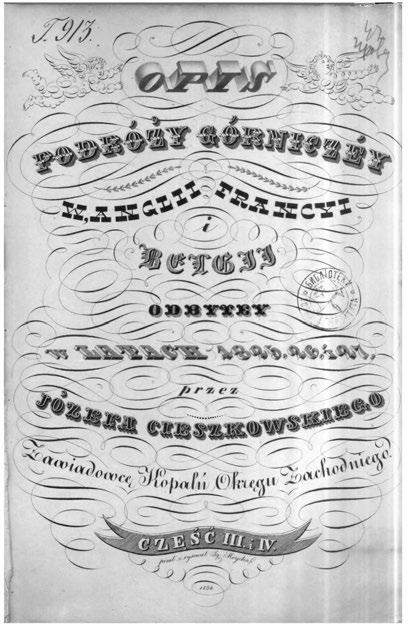 T. 913.
OPIS
PODRÓŻY GÓRNICZÉY
W, ANGLII FRANCYI
i
BELGII
ODBYTEY
w LATACH 1825, 26, i 27.
przez
JÓZEFA CIESZKOWSKIEGO
Zawiadowcę Kopalń Okręgu Zachodniego.
CZĘŚĆ III. i IV.